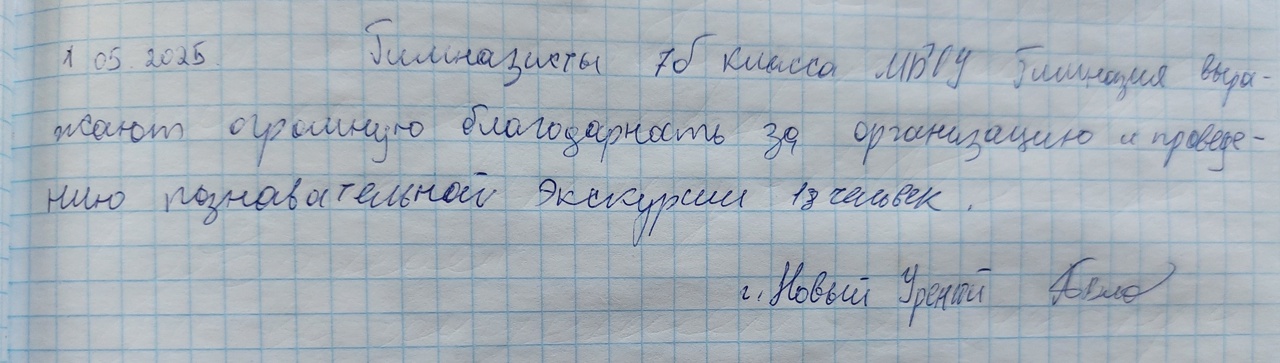 1 05.2025. Гимназисты 7б класса МБОУ Гимназия выра-
жают огромную благодарность за организацию и проведе-
нию познавательной экскурсии 13 человек.
г. Новый Уренгой